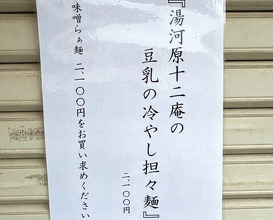 『湯河原十二庵の
豆乳の冷やし担々麺』
二、一〇〇円
味噌らぁ麺 二、一〇〇円をお買い求めください